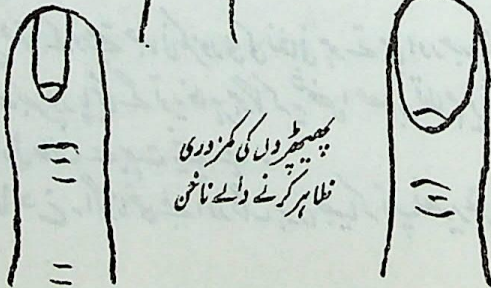 پھیپھڑوں کی کمزوری
ظاہر کرنے والے ناخن